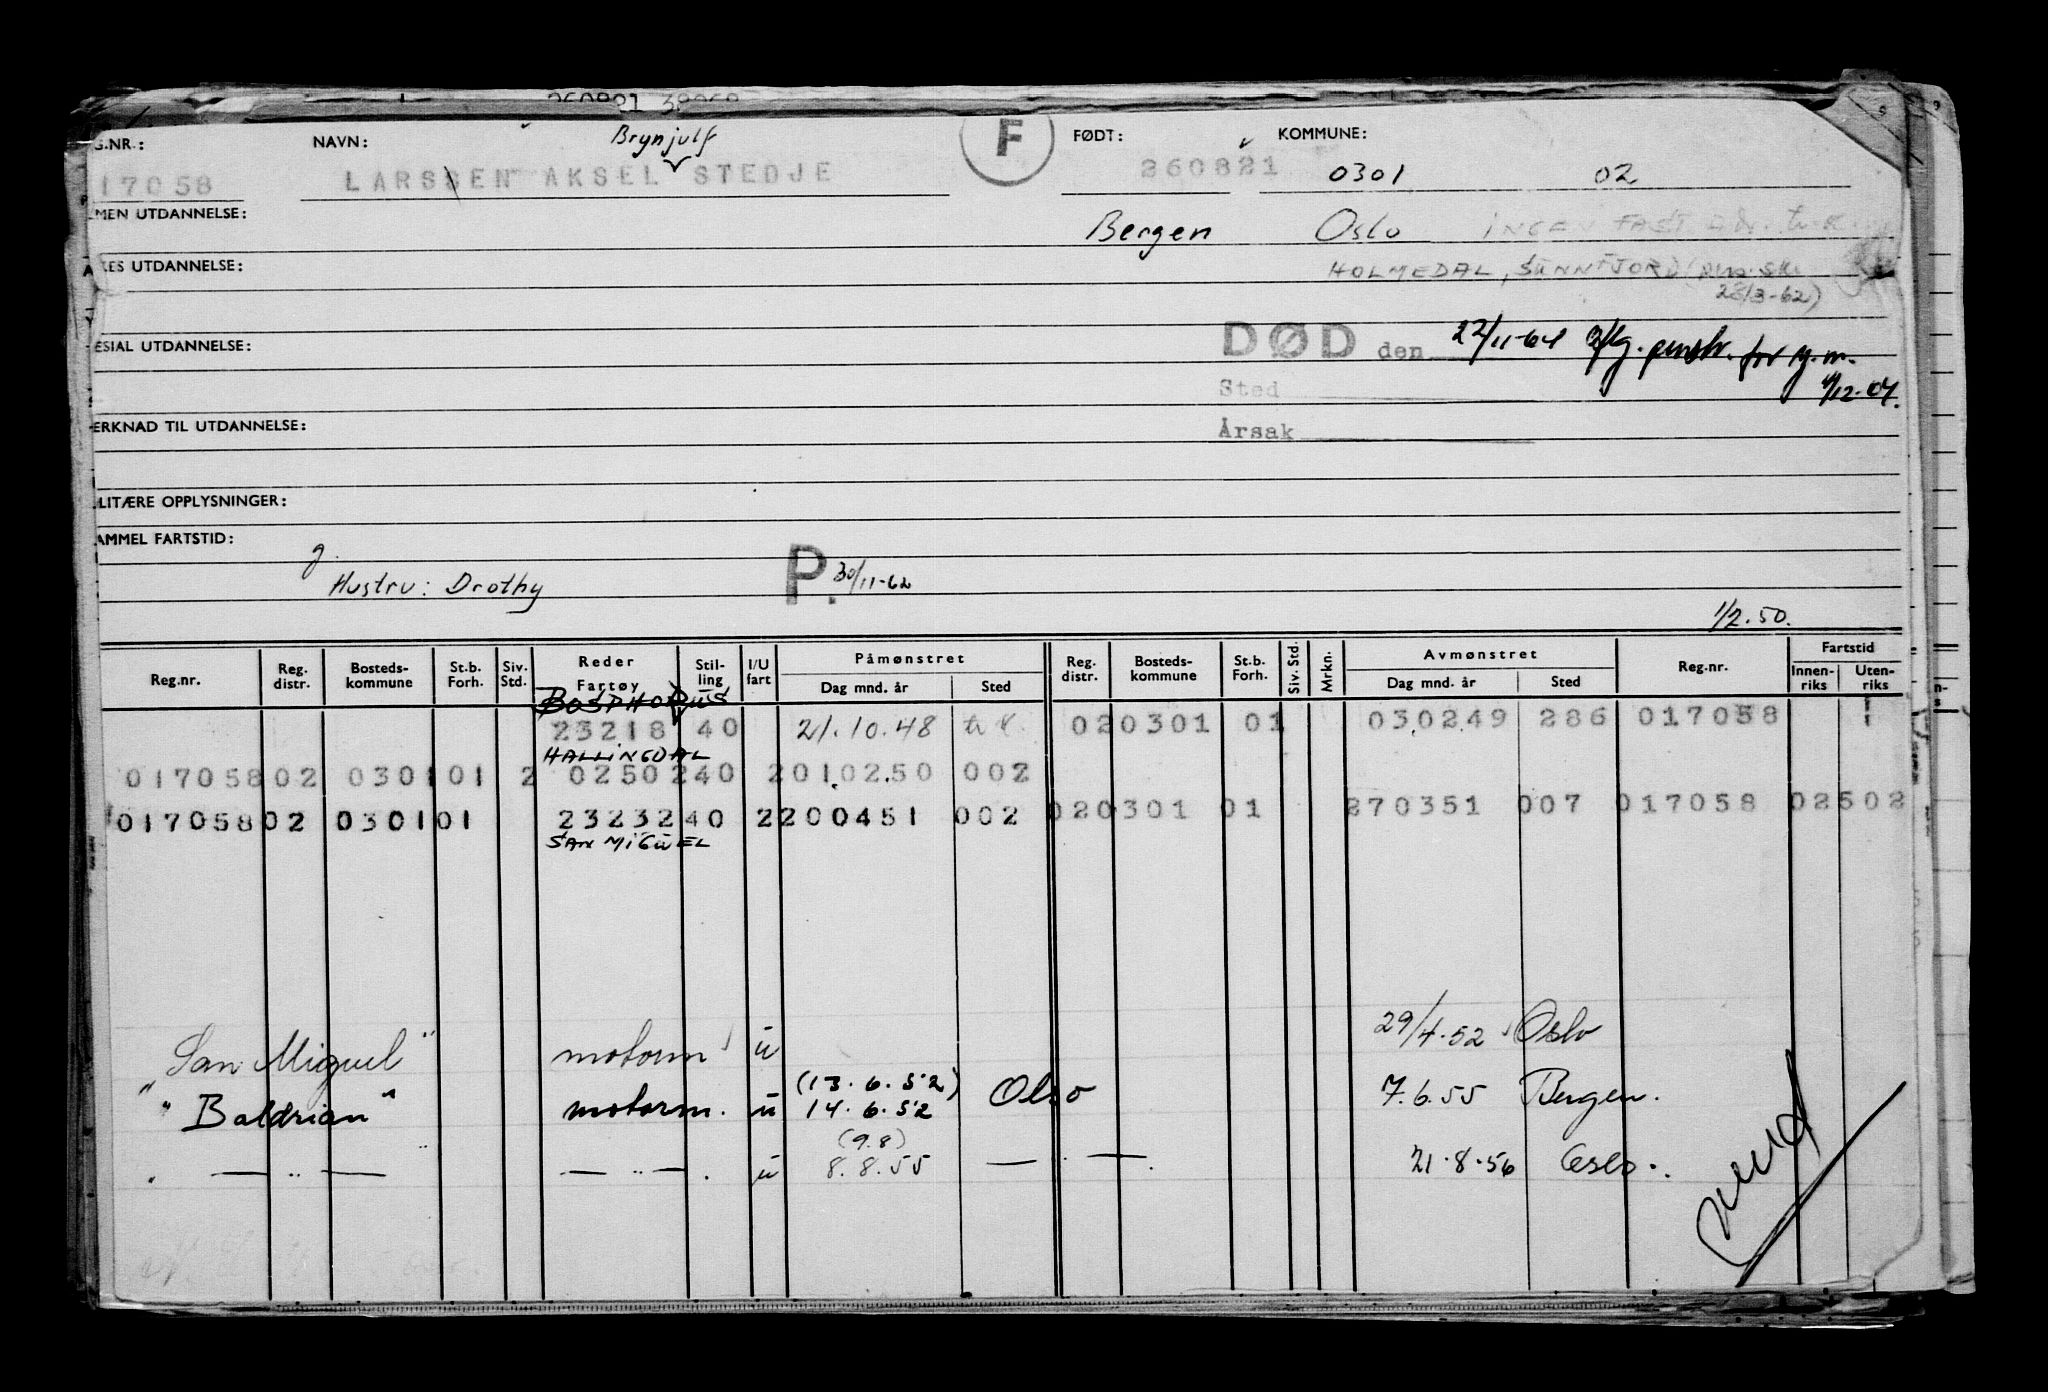 260821 38068
G.NR.: NAVN: Brynjulf F FØDT: KOMMUNE:
17058 LARSSEN AKSEL STEDJE 260821 0301 02
MEN UTDANNELSE: Bergen Oslo INGEN FAST
KES UTDANNELSE: HOLMEDAL, SUNNFJORD
28/3-62)
ESIAL UTDANNELSE: DØD den 22/11-64 for
Sted 12.04.
ERKNAD TIL UTDANNELSE: Årsak
LITÆRE OPPLYSNINGER:
AMMEL FARTSTID:
g.
Hustru: Drothy P. 30/11-62
1/2.50.
Reg.nr. Reg. distr. Bosteds- kommune St.b. Forh. Siv. Std. Reder Fartøy Stil- ling I/U fart Påmønstret Dag mnd. år Sted Reg. distr. Bosteds- kommune St.b. Forh. Siv. Std. Mrkn. Avmønstret Dag mnd. år Sted Reg.nr. Fartstid Innen- riks Uten- riks
BOSPHORUS
23218 40 21.10.48 020301 01 030249 286 017058 1
HALLINGDAL
017058 02 0301 01 2 02502 40 2 010250 002
020301 01 270351 007 017058 02502
017058 02 0301 01 23232 40 2 200451 002
SAN MIGUEL
29/4.52 Oslo
"San Miguel" motorm ü
(13.6.52)
" "Baldrian" motorm. ü 14.6.52 Olso 7.6.55 Bergen.
(9.8)
" — " — — " — . ü 8.8.55 — " — . 21.8.56 Oslo.